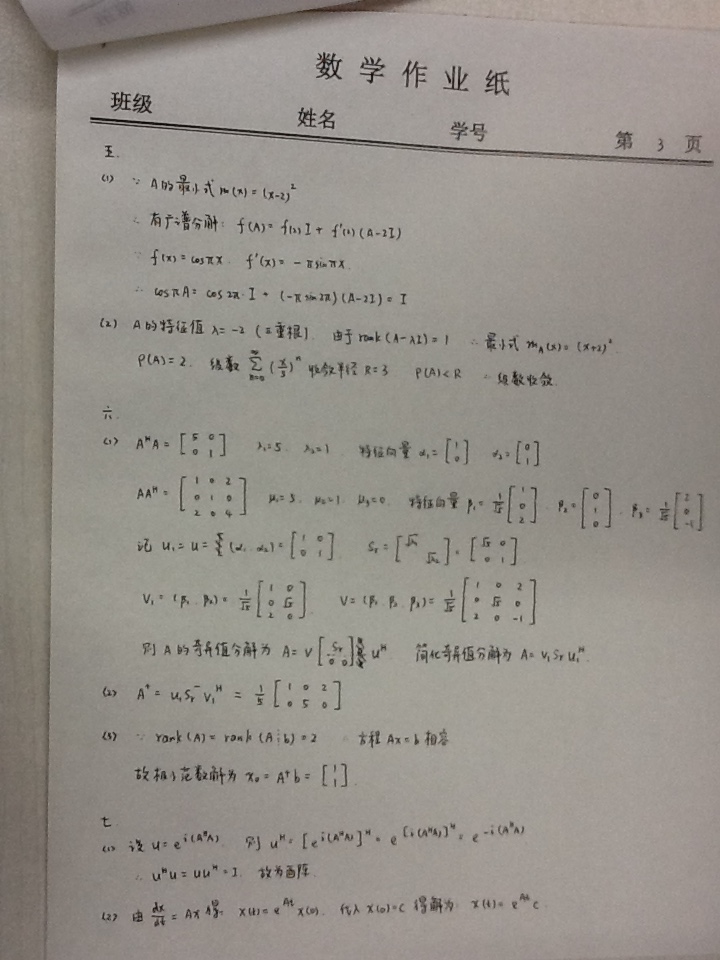 数学作业纸
班级 姓名 学号 第 3 页
五.
(1) ∵ A的最小式 m(x) = (x-2)²
∴ 有广谱分解: f(A) = f(2)I + f'(2)(A-2I)
∵ f(x) = cosπx. f'(x) = -πsinπx.
∴ cosπA = cos2π·I + (-πsin2π)(A-2I) = I
(2) A的特征值 λ=-2 (三重根). 由于rank(A-λI)=1 ∴ 最小式 m_A(x) = (x+2)².
ρ(A)=2. 级数 ∑_{n=0}^{∞} (x/3)^n 收敛半径 R=3 ρ(A)<R ∴ 级数收敛.
六.
(1) A^H A = [5 0; 0 1] λ₁=5. λ₂=1 特征向量 α₁=[1; 0] α₂=[0; 1]
AA^H = [1 0 2; 0 1 0; 2 0 4] μ₁=5. μ₂=1. μ₃=0. 特征向量 β₁=1/√5 [1; 0; 2]. β₂=[0; 1; 0]. β₃=1/√5 [2; 0; -1]
记 U₁=U=(α₁ α₂)=[1 0; 0 1] S_r=[√λ₁ ; √λ₂]=[√5 0; 0 1]
V₁=(β₁ β₂)=1/√5 [1 0; 0 √5; 2 0] V=(β₁ β₂ β₃)=1/√5 [1 0 2; 0 √5 0; 2 0 -1]
则 A的奇异值分解为 A=V[S_r; 0 0] U^H 简化奇异值分解为 A=V₁S_rU₁^H.
(2) A⁺ = U₁S_r⁻V₁^H = 1/5 [1 0 2; 0 5 0]
(3) ∵ rank(A)=rank(A⋮b)=2 ∴ 方程Ax=b相容
故极小范数解为 x₀=A⁺b=[1; 1].
七
(1) 设 U=e^{i(A^H A)}. 则 U^H=[e^{i(A^H A)}]^H=e^{[i(A^H A)]^H}=e^{-i(A^H A)}
∴ U^H U=UU^H=I. 故为酉阵.
(2) 由 dx/dt=Ax 得: x(t)=e^{At}x(0). 代入x(0)=c 得解为: x(t)=e^{At}c.